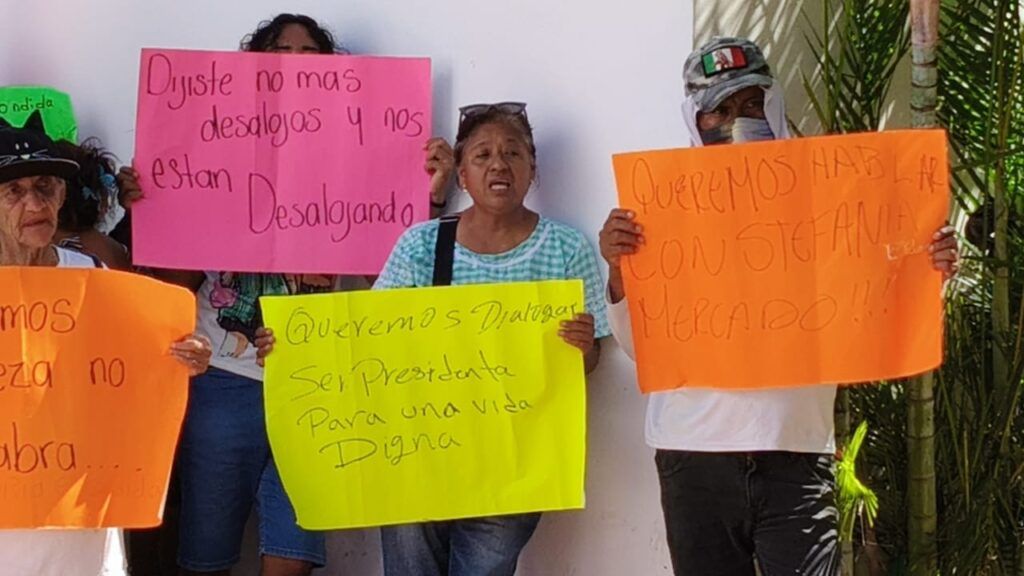 ondida
Dijiste no mas
desalojos y nos
estan Desalojando
mos
eza no
abra....
Queremos Dialogar
Ser Presidenta
Para una vida
Digna
QUEREMOS HABLAR
CON STEFANIA
MERCADO!!!